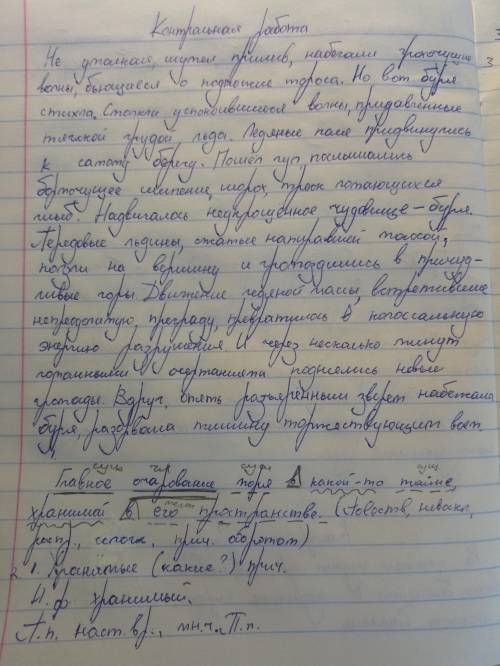 Контрольная работа
Не умолкая, шумел прилив, набегали грохочущие
волны, бьющиеся о подножие тороса. Но вот буря
стихла. Смолкли успокоившиеся волны, придавленные
тяжкой грудой льда. Ледяные поле придвинулись
к самому берегу. Пошёл гул, послышались
бормочущее шипение, шорох, треск ломающихся
глыб. Надвигалось неукрощенное чудовище - буря.
Передовые льдины, сжатые напиравшей массой,
ползли на вершину и громоздились в причуд-
ливые горы. Движение ледяной массы, встретившие
непреодолимую, преграду, превратилось в колоссальную
энергию разрушения. И через несколько минут
ломанными очертаниями поднялись новые
громады. Вдруг, опять разъяренным зверем набежала
буря, разорвала тишину торжествующим воем.
Главное очарование моря в какой-то тайне,
хранимой в его пространстве. (Повеств, невоскл,
расп, прич. оборотом)
2. 1. Хранимые (какие?) прич.
Н. ф. хранимый.
П.п. наст.вр., мн.ч. П.п.